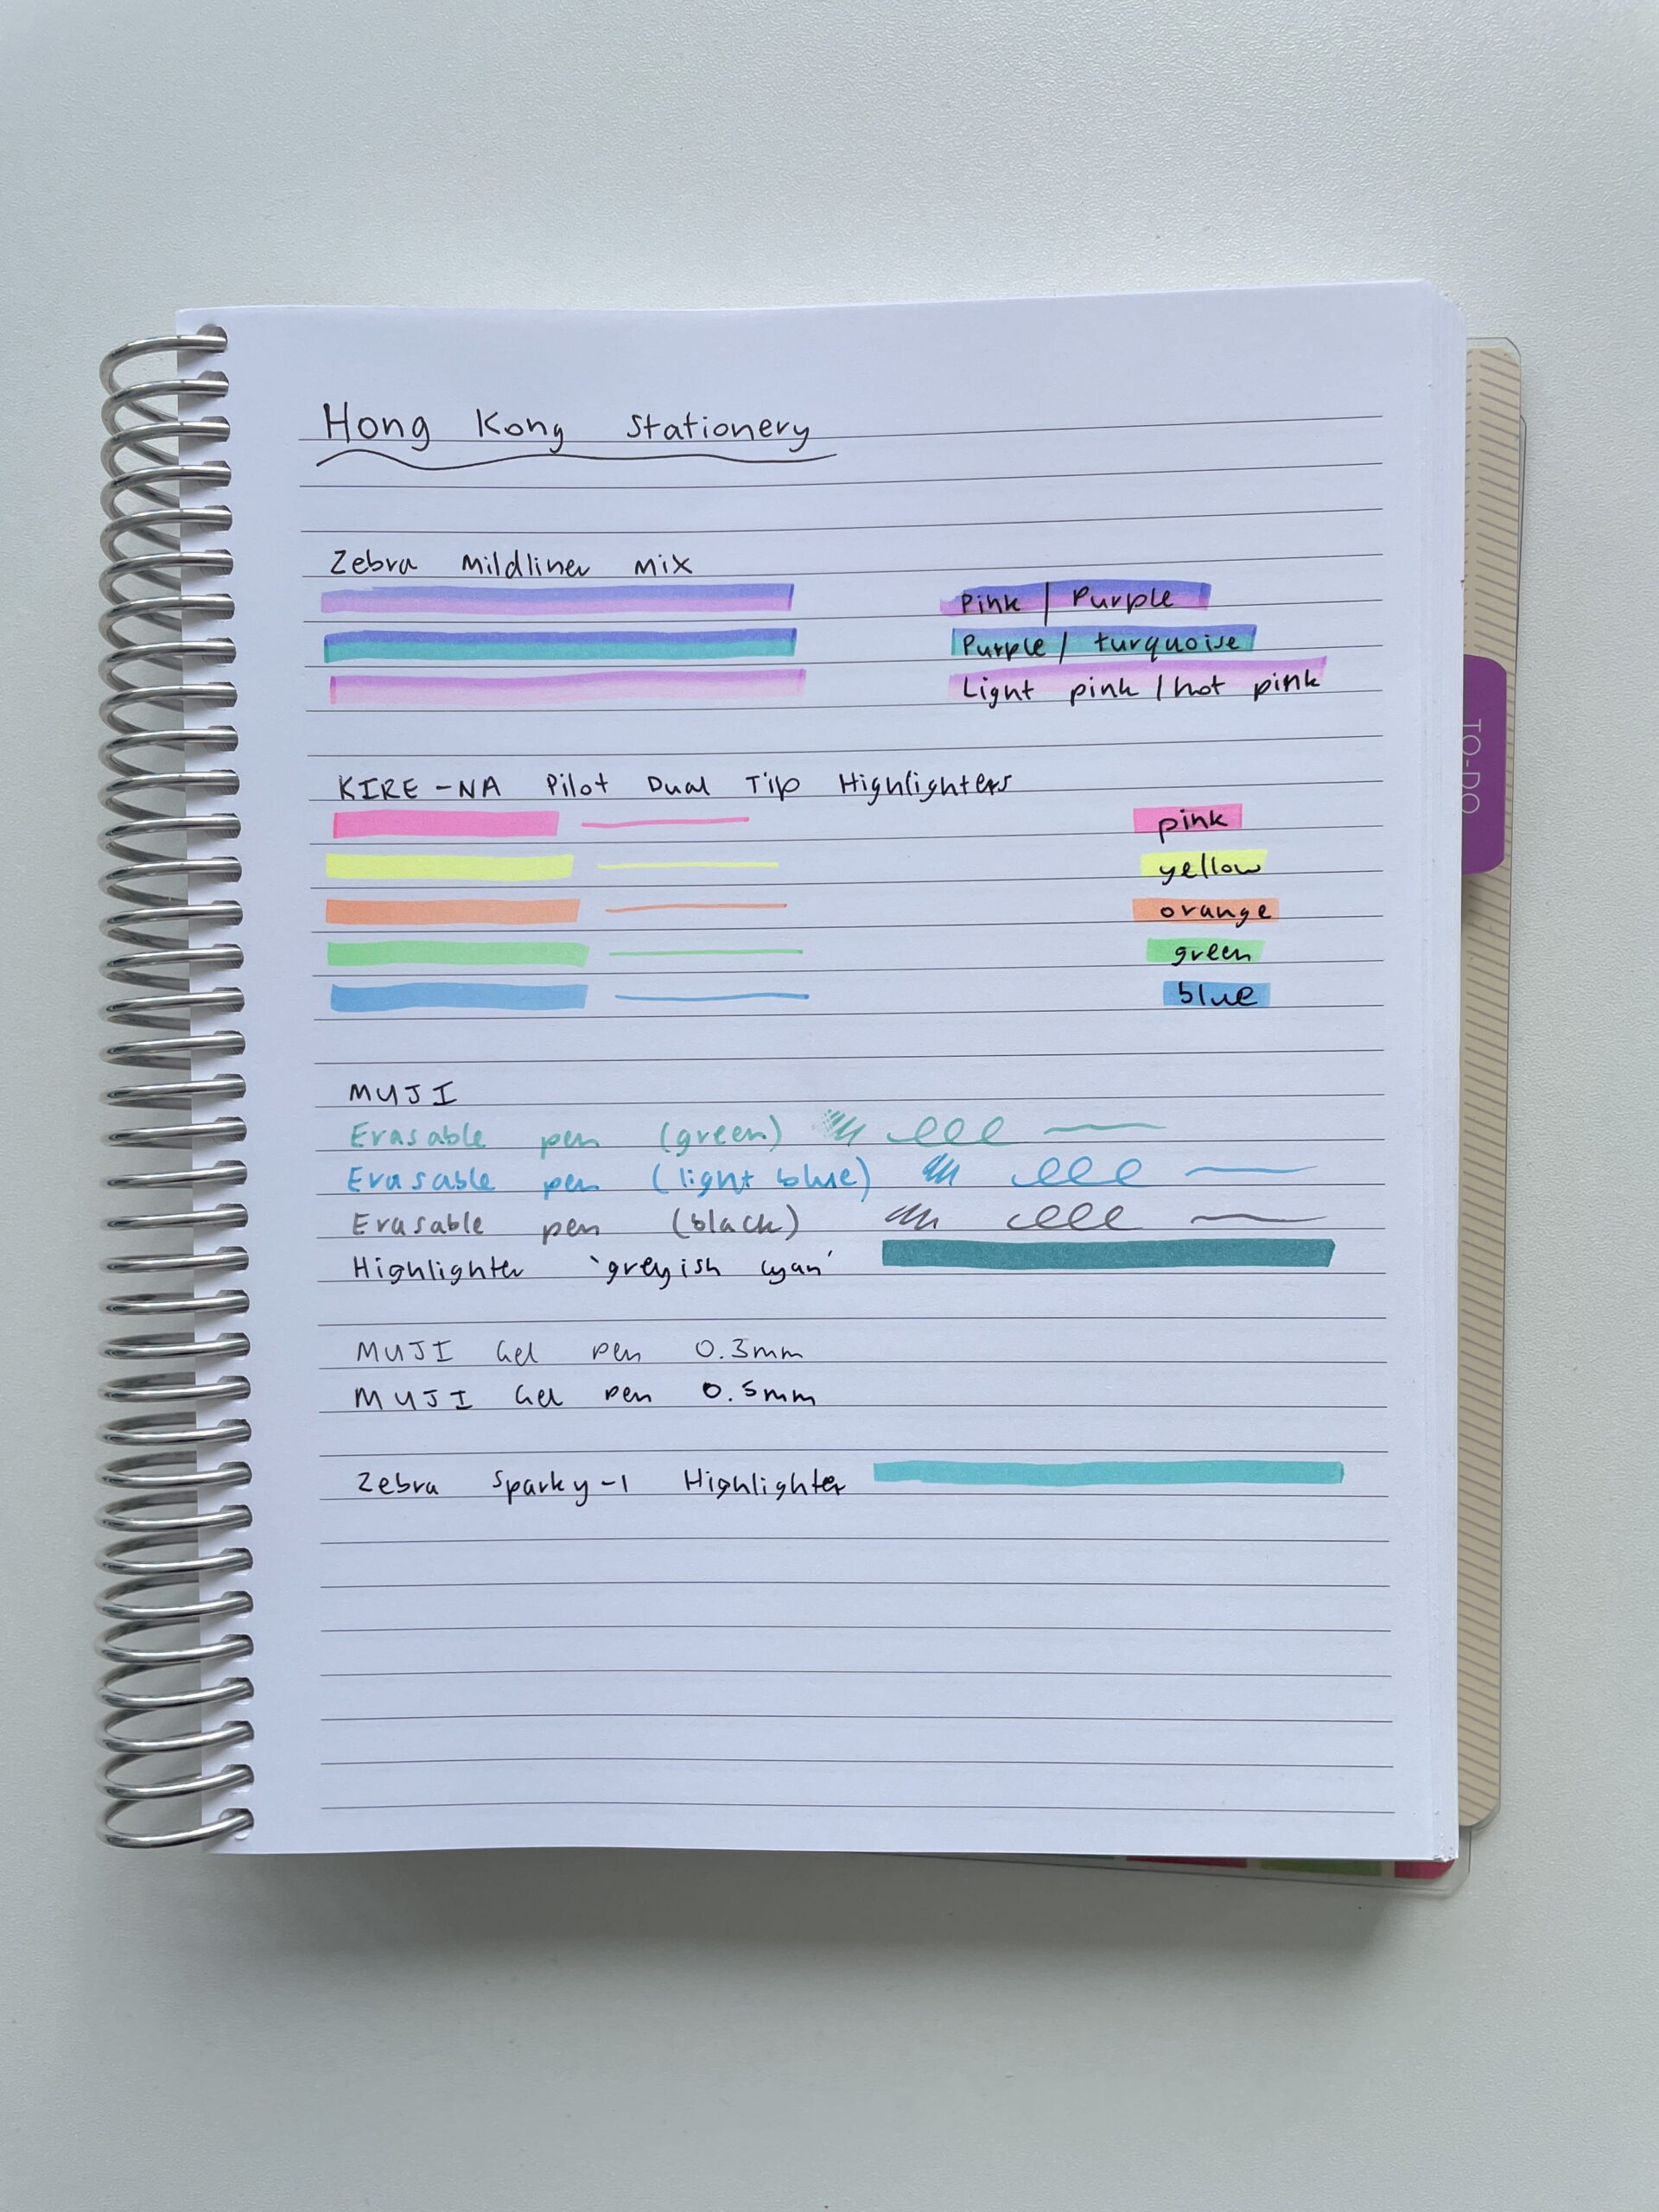 Hong Kong Stationery
Zebra Mildliner Mix
Pink | Purple
Purple / turquoise
Light pink / hot pink
KIRE-NA Pilot Dual Tip Highlighters
pink
yellow
orange
green
blue
MUJI
Erasable pen (green)
Erasable pen (light blue)
Erasable pen (black)
Highlighter 'greyish cyan'
MUJI Gel pen 0.3mm
MUJI Gel pen 0.5mm
Zebra Sparky-1 Highlighter
TO-DO